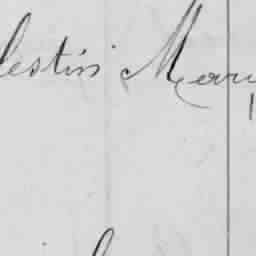 lestin Mari